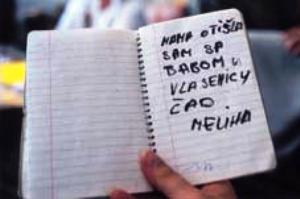 MAMA OTIŠLA
SAM SA
BABOM U
VLASENICU
ĆAO.
MELIHA